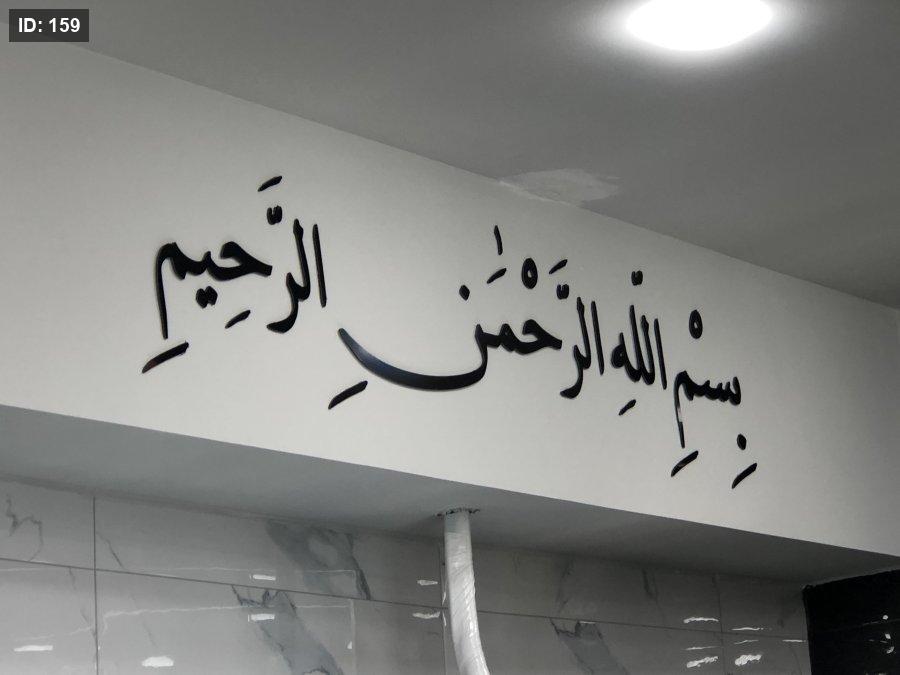 ID: 159
بِسْمِ اللَّهِ الرَّحْمَٰنِ الرَّحِيمِ